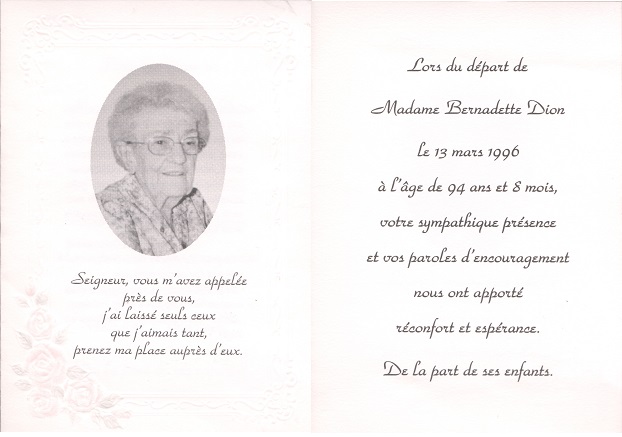 Seigneur, vous m'avez appelée
près de vous,
j'ai laissé seuls ceux
que j'aimais tant,
prenez ma place auprès d'eux.
Lors du départ de
Madame Bernadette Dion
le 13 mars 1996
à l'âge de 94 ans et 8 mois,
votre sympathique présence
et vos paroles d'encouragement
nous ont apporté
réconfort et espérance.
De la part de ses enfants.